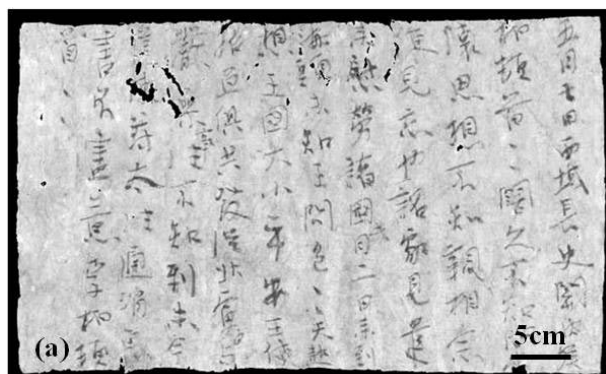 五月七日西域長史關內侯
柏頓首、、闊久不知
懷思想不知親相念
便見忘也詔家見遣
來慰勞諸國月二日來到
海頭未知王問邑、天熱
想王國大小平安王使
俱共發從北虜
嚴參事往不知到未今
使苻太往通消息
書不盡意李柏頓
首、、
(a)
5cm